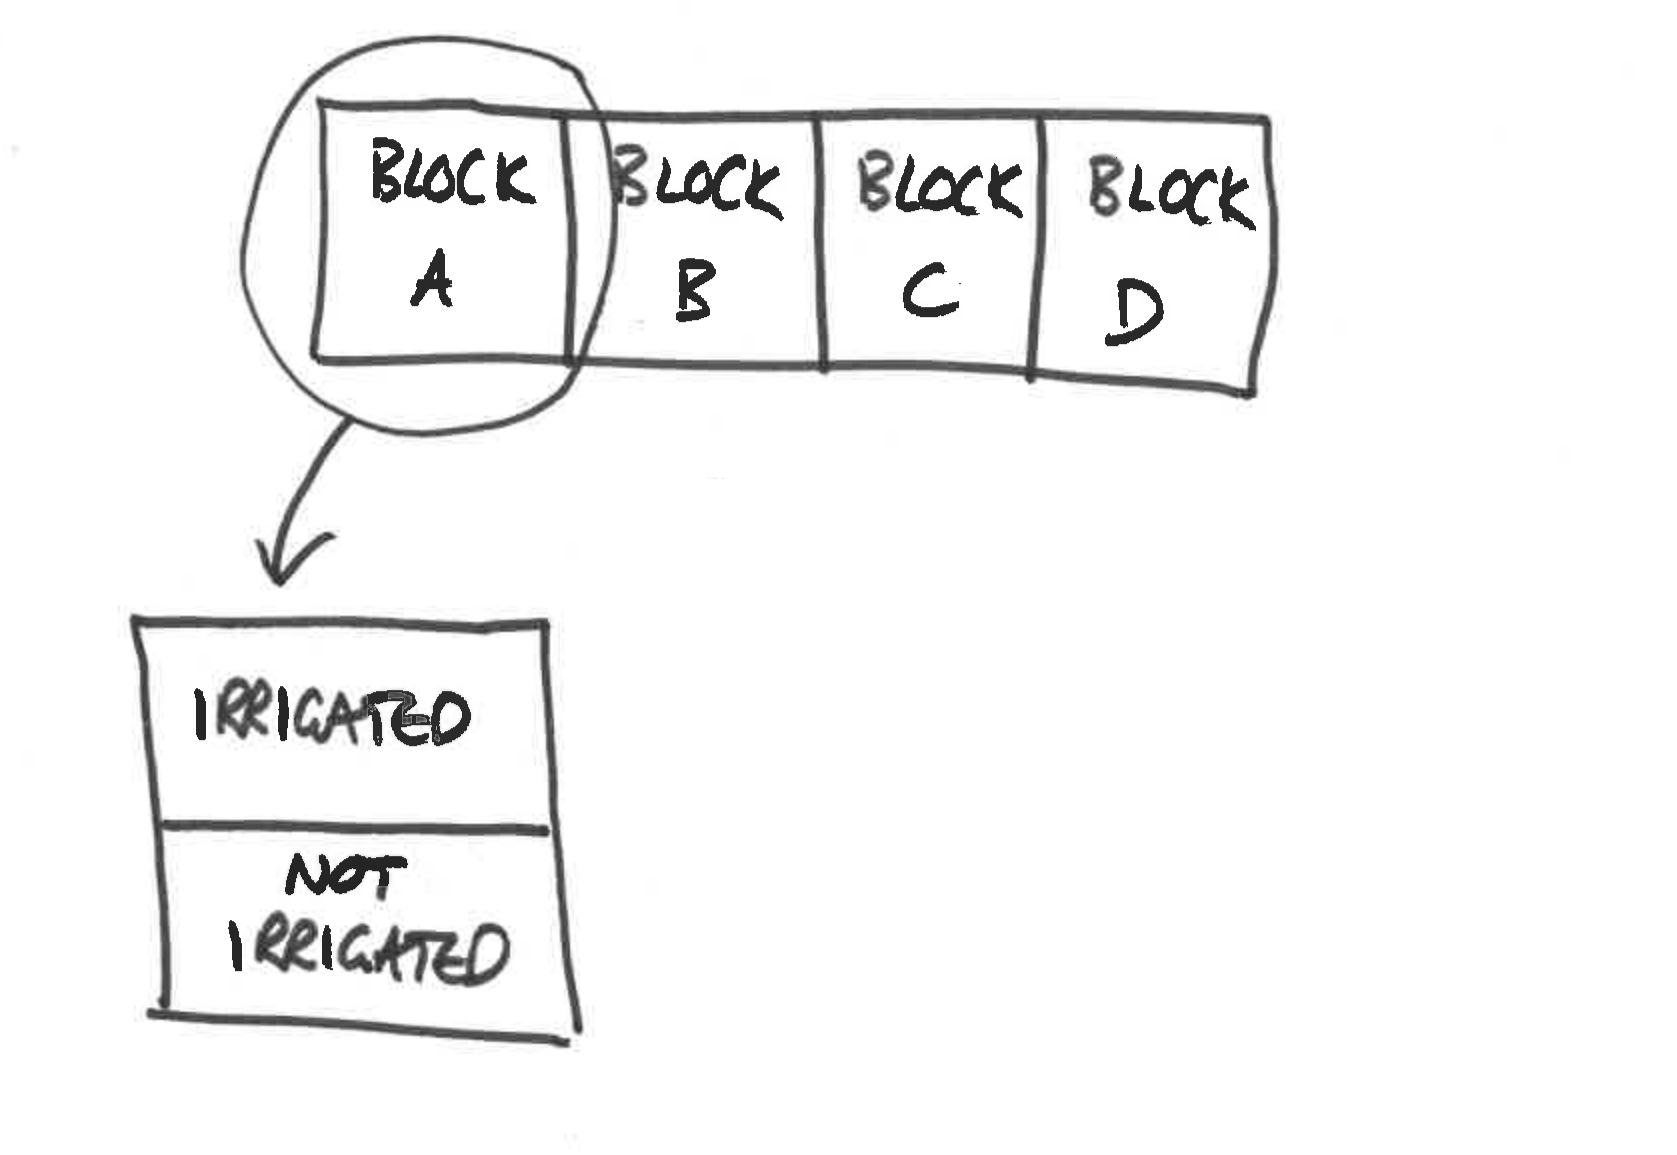 BLOCK BLOCK BLOCK BLOCK
A B C D
IRRIGATED
NOT
IRRIGATED